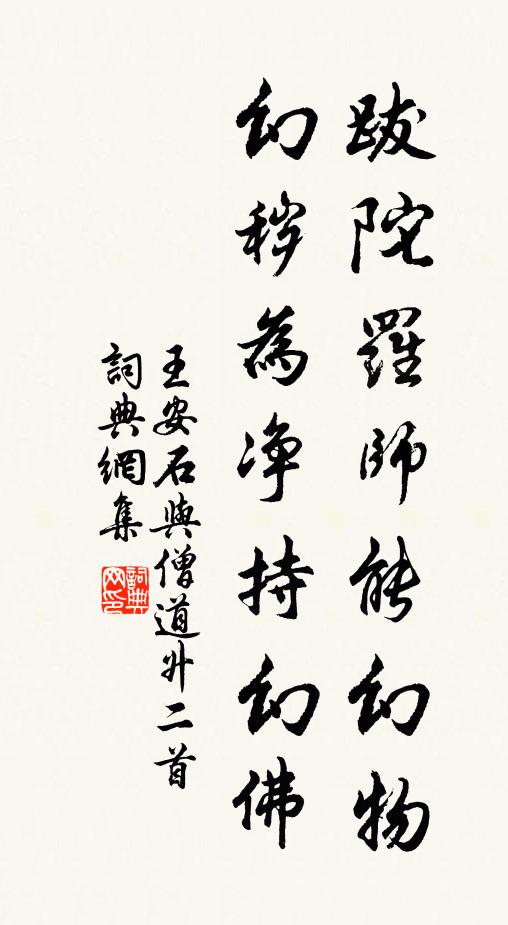 跋陀羅師能幻物
幻穢為净持幻佛
王安石與僧道升二首
詞典網集
詞典
网印